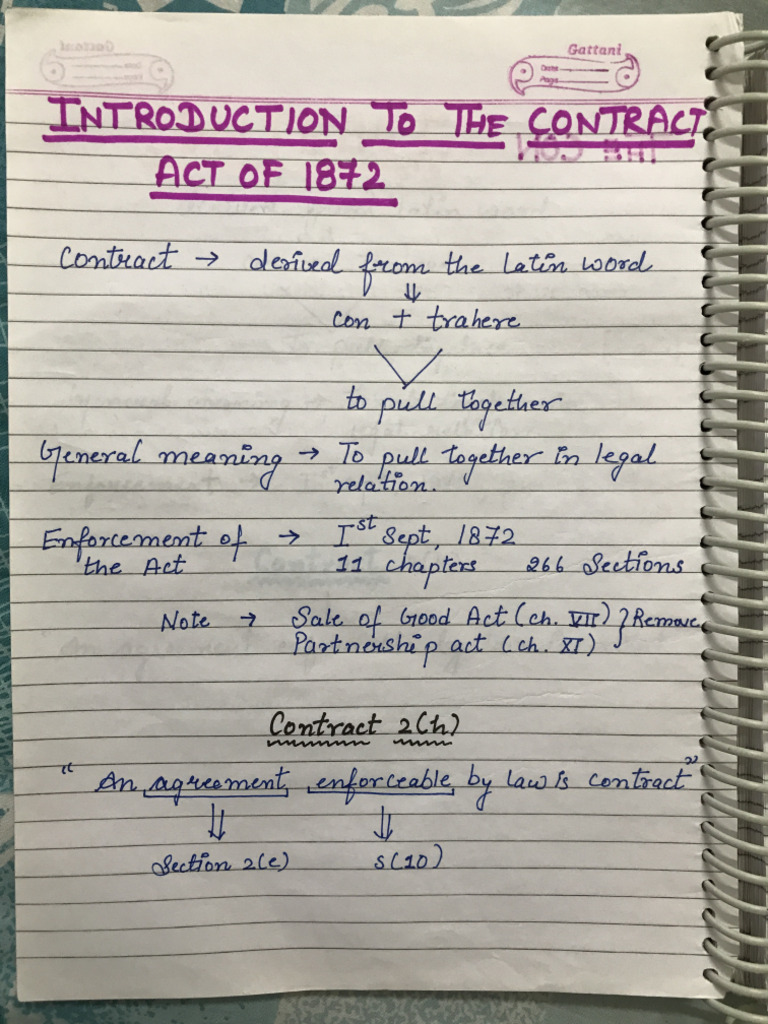 Gattani
Date
Page
INTRODUCTION TO THE CONTRACT
ACT OF 1872
Contract → derived from the Latin word
⇓
con + trahere
to pull together
General meaning → To pull together in legal
relation.
Enforcement of → Ist Sept, 1872
the Act 11 chapters 266 Sections
Note → Sale of Good Act (ch. VII) } Remove
Partnership act (ch. XI)
Contract 2(h)
"An agreement enforceable by law is contract"
⇓ ⇓
Section 2(e) s(10)